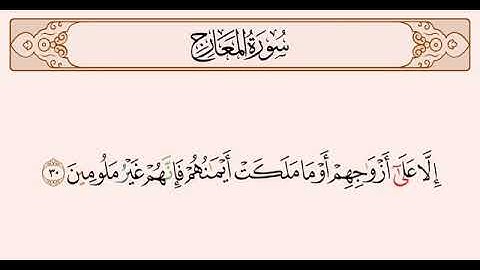 سُورَةُ الْمَعَارِجِ
إِلَّا عَلَىٰٓ أَزْوَٰجِهِمْ أَوْ مَا مَلَكَتْ أَيْمَـٰنُهُمْ فَإِنَّهُمْ غَيْرُ مَلُومِينَ ٣٠